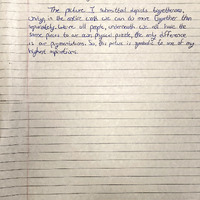 The picture I submitted depicts togetherness,
unity; in the entire world we can do more together than
separately. We're all people, underneath we all have the
same pieces to we own physical puzzle, the only difference
is our pigmentations. So, this picture is symbolic to one of my
highest aspirations.